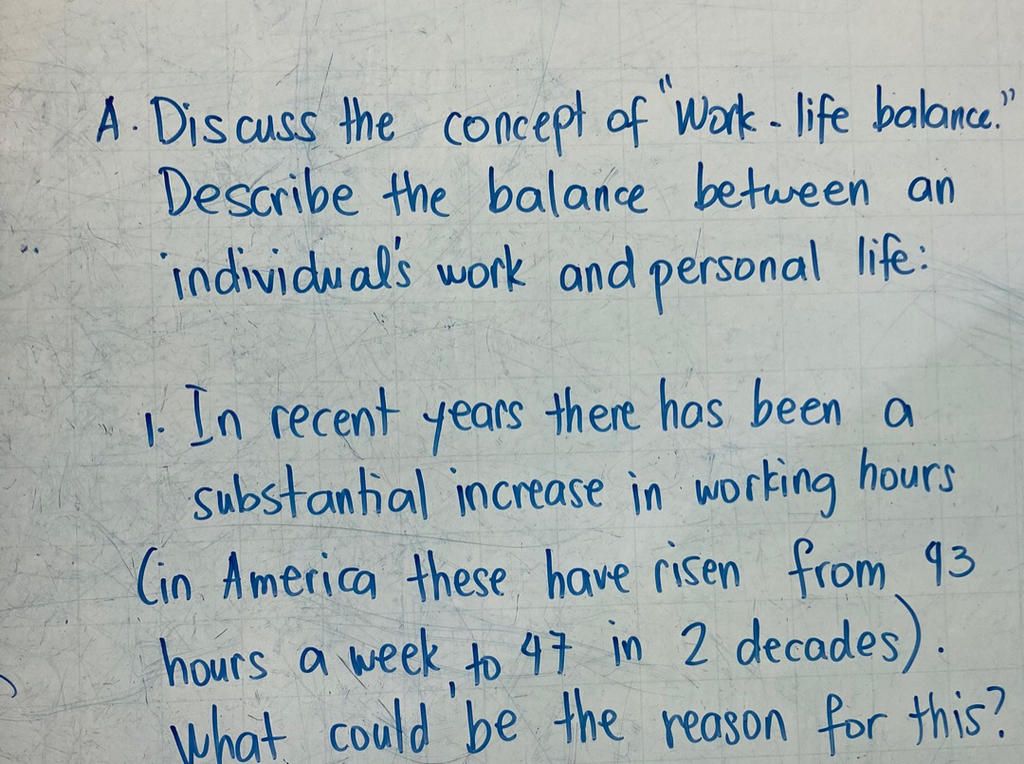 A. Discuss the concept of "Work-life balance."
Describe the balance between an
individual's work and personal life:
1. In recent years there has been a
substantial increase in working hours
(in America these have risen from 43
hours a week, to 47 in 2 decades).
What could be the reason for this?